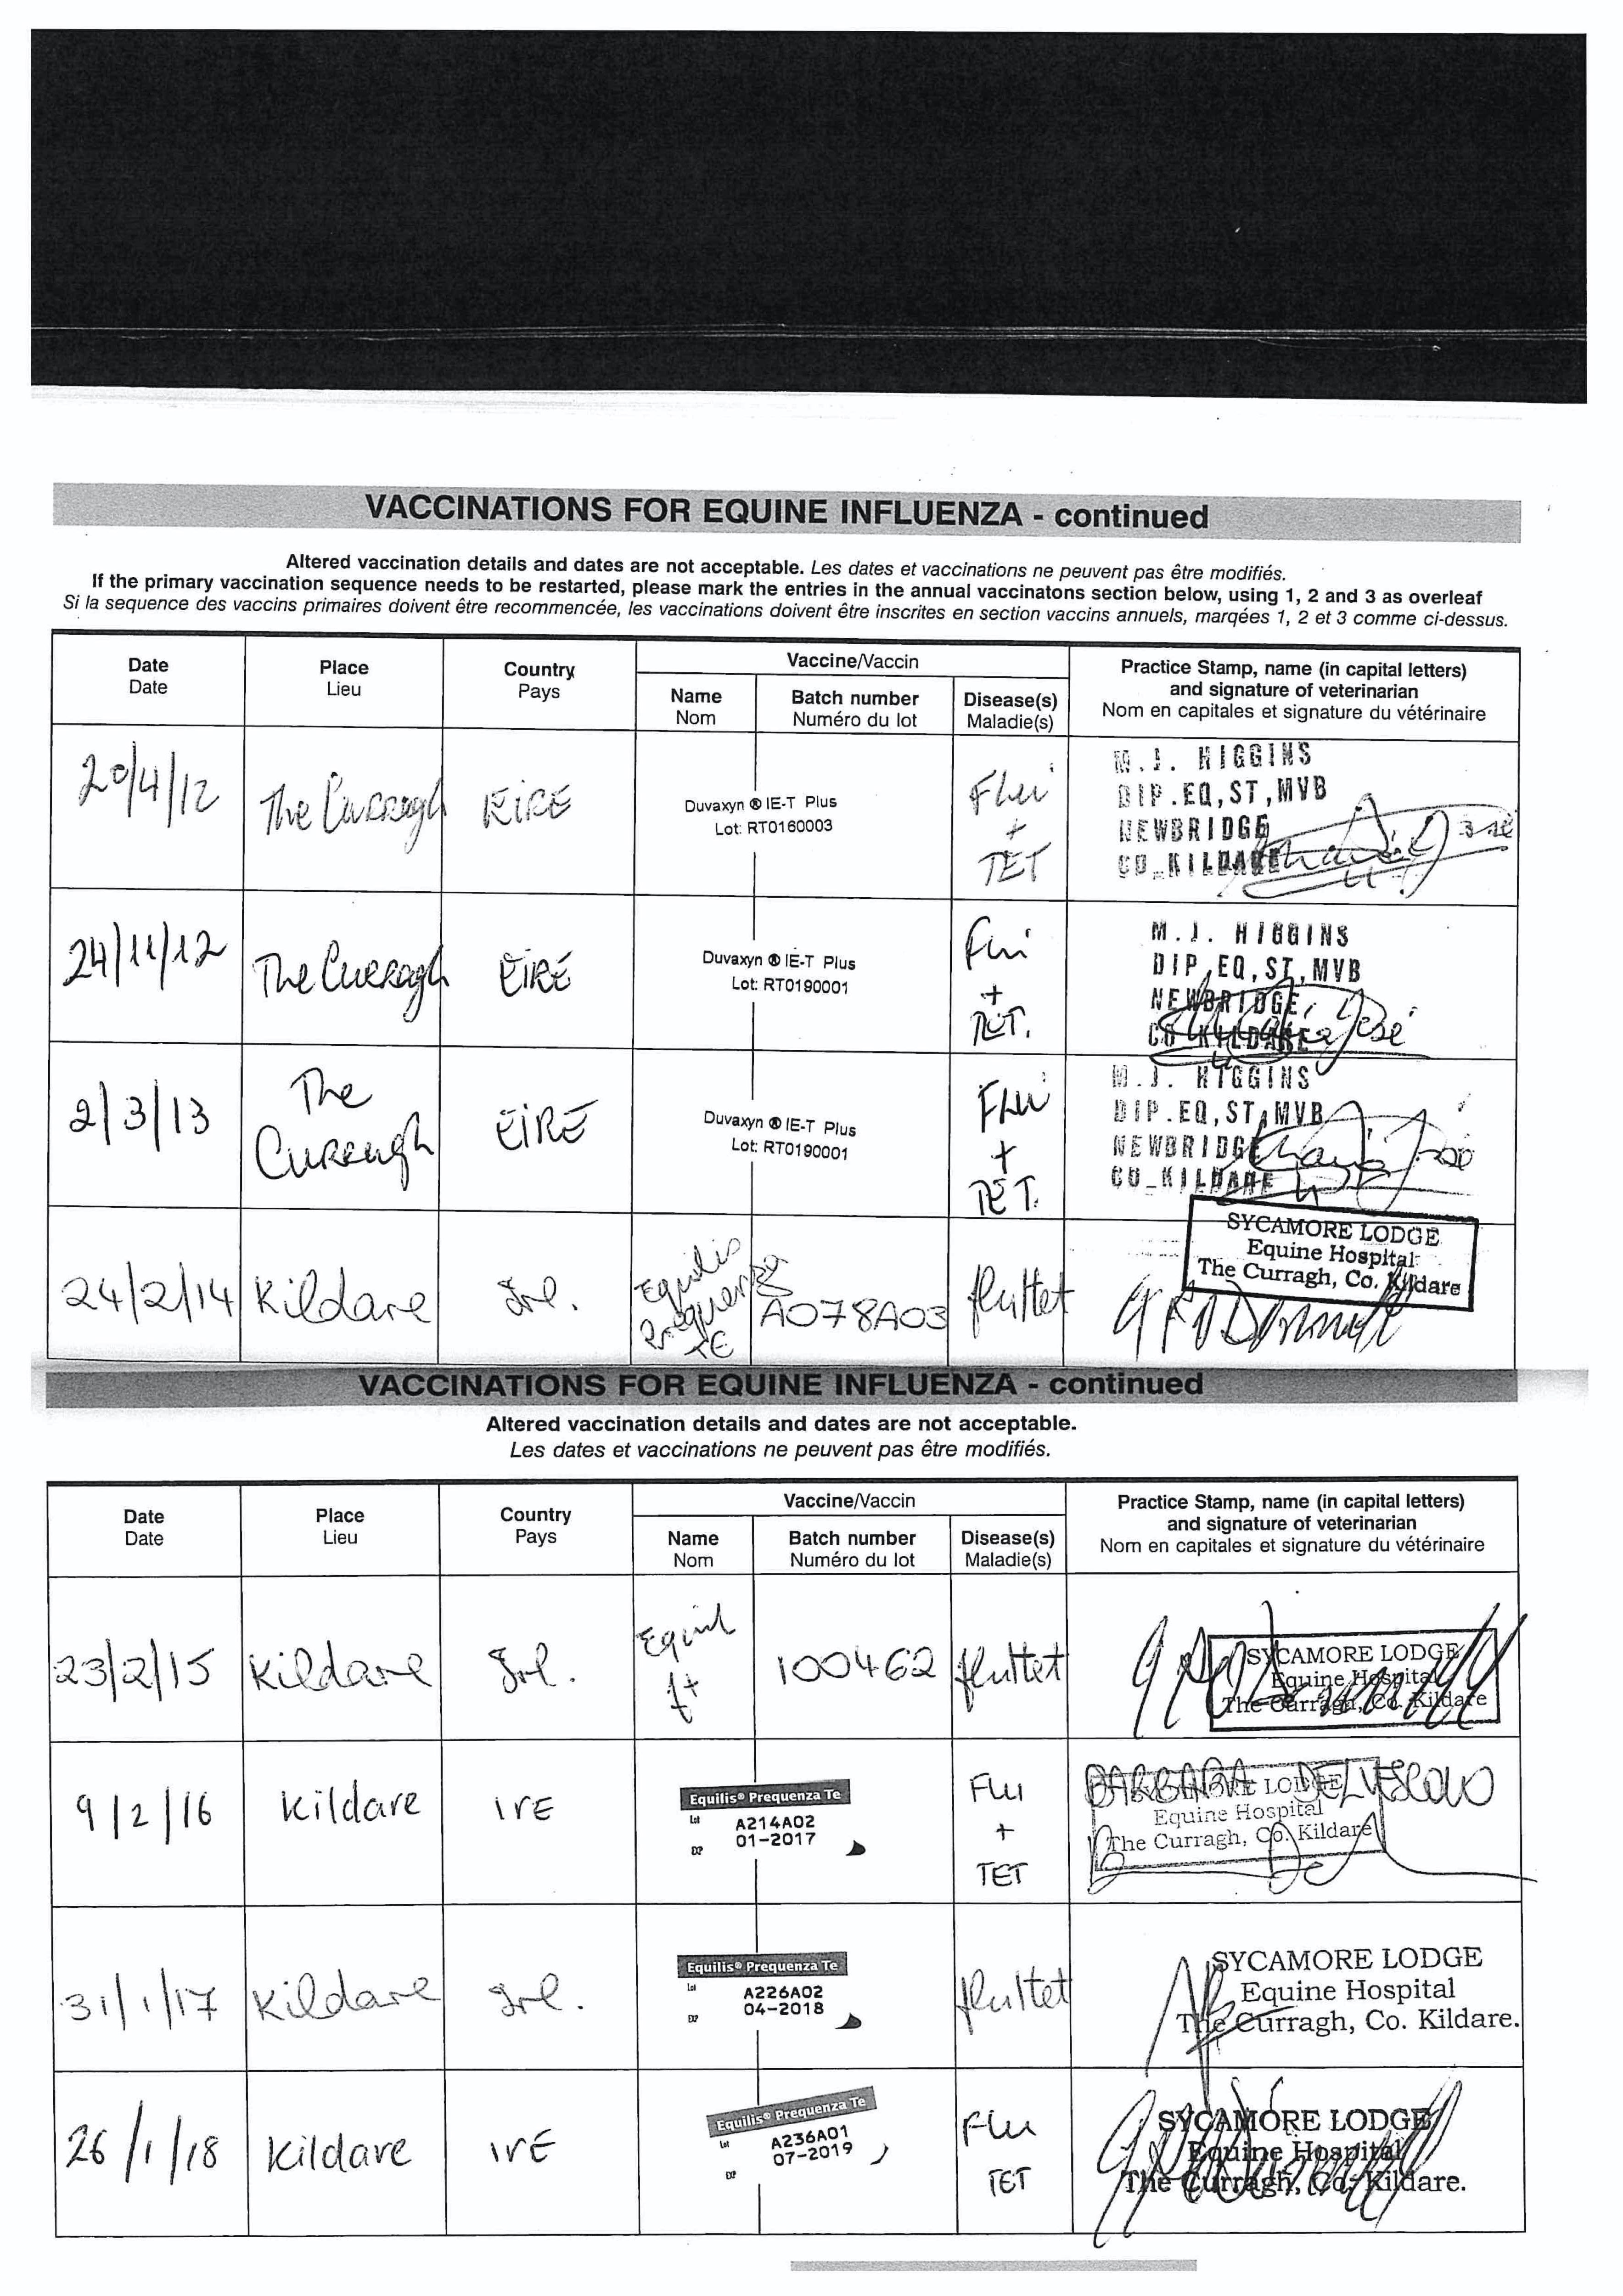 VACCINATIONS FOR EQUINE INFLUENZA - continued
Altered vaccination details and dates are not acceptable. Les dates et vaccinations ne peuvent pas être modifiés.
If the primary vaccination sequence needs to be restarted, please mark the entries in the annual vaccinatons section below, using 1, 2 and 3 as overleaf
Si la sequence des vaccins primaires doivent être recommencée, les vaccinations doivent être inscrites en section vaccins annuels, marqées 1, 2 et 3 comme ci-dessus.
Date
Date
Place
Lieu
Country
Pays
Vaccine/Vaccin
Name
Nom
Batch number
Numéro du lot
Disease(s)
Maladie(s)
Practice Stamp, name (in capital letters)
and signature of veterinarian
Nom en capitales et signature du vétérinaire
20/4/12
The Curragh
EIRE
Duvaxyn ® IE-T Plus
Lot: RT0160003
Flu
+
TET
M.J. HIGGINS
DIP.EQ,ST,MVB
NEWBRIDGE
CO_KILDARE
24/11/12
The Curragh
EIRE
Duvaxyn ® IE-T Plus
Lot: RT0190001
Flu
+
TET.
M.J. HIGGINS
DIP.EQ,ST,MVB
NEWBRIDGE
CO_KILDARE
2/3/13
The
Curragh
EIRE
Duvaxyn ® IE-T Plus
Lot: RT0190001
Flu
+
TET.
M.J. HIGGINS
DIP.EQ,ST,MVB
NEWBRIDGE
CO_KILDARE
24/2/14
Kildare
Irl.
Equilis
Prequenza
TE
A078A03
flu+tet
SYCAMORE LODGE
Equine Hospital
The Curragh, Co. Kildare
VACCINATIONS FOR EQUINE INFLUENZA - continued
Altered vaccination details and dates are not acceptable.
Les dates et vaccinations ne peuvent pas être modifiés.
Date
Date
Place
Lieu
Country
Pays
Vaccine/Vaccin
Name
Nom
Batch number
Numéro du lot
Disease(s)
Maladie(s)
Practice Stamp, name (in capital letters)
and signature of veterinarian
Nom en capitales et signature du vétérinaire
23/2/15
Kildare
Irl.
Equil
100462
flu+tet
SYCAMORE LODGE
Equine Hospital
The Curragh, Co. Kildare
9/2/16
Kildare
IrE
Equilis® Prequenza Te
Lot A214A02
EXP 01-2017
Flu
+
TET
BARBARA DELVESCOVO
SYCAMORE LODGE
Equine Hospital
The Curragh, Co. Kildare
31/1/17
Kildare
Irl.
Equilis® Prequenza Te
Lot A226A02
EXP 04-2018
flu+tet
SYCAMORE LODGE
Equine Hospital
The Curragh, Co. Kildare.
26/1/18
Kildare
IrE
Equilis® Prequenza Te
Lot A236A01
EXP 07-2019
Flu
TET
SYCAMORE LODGE
Equine Hospital
The Curragh, Co. Kildare.